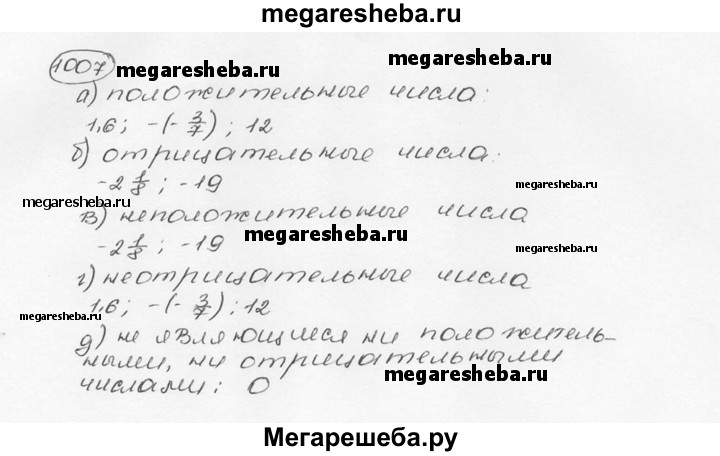 megaresheba.ru
1007 megaresheba.ru
а) положительные числа:
1,6; -(- 3/7) ; 12
б) отрицательные числа:
-2 1/8 ; -19 megaresheba.ru
megaresheba.ru
в) неположительные числа
-2 1/8 ; -19 megaresheba.ru megaresheba.ru
г) неотрицательные числа
megaresheba.ru
1,6; -(- 3/7) ; 12
д) не являющиеся ни положитель-
ными, ни отрицательными
числами: 0 megaresheba.ru
Мегарешеба.ру